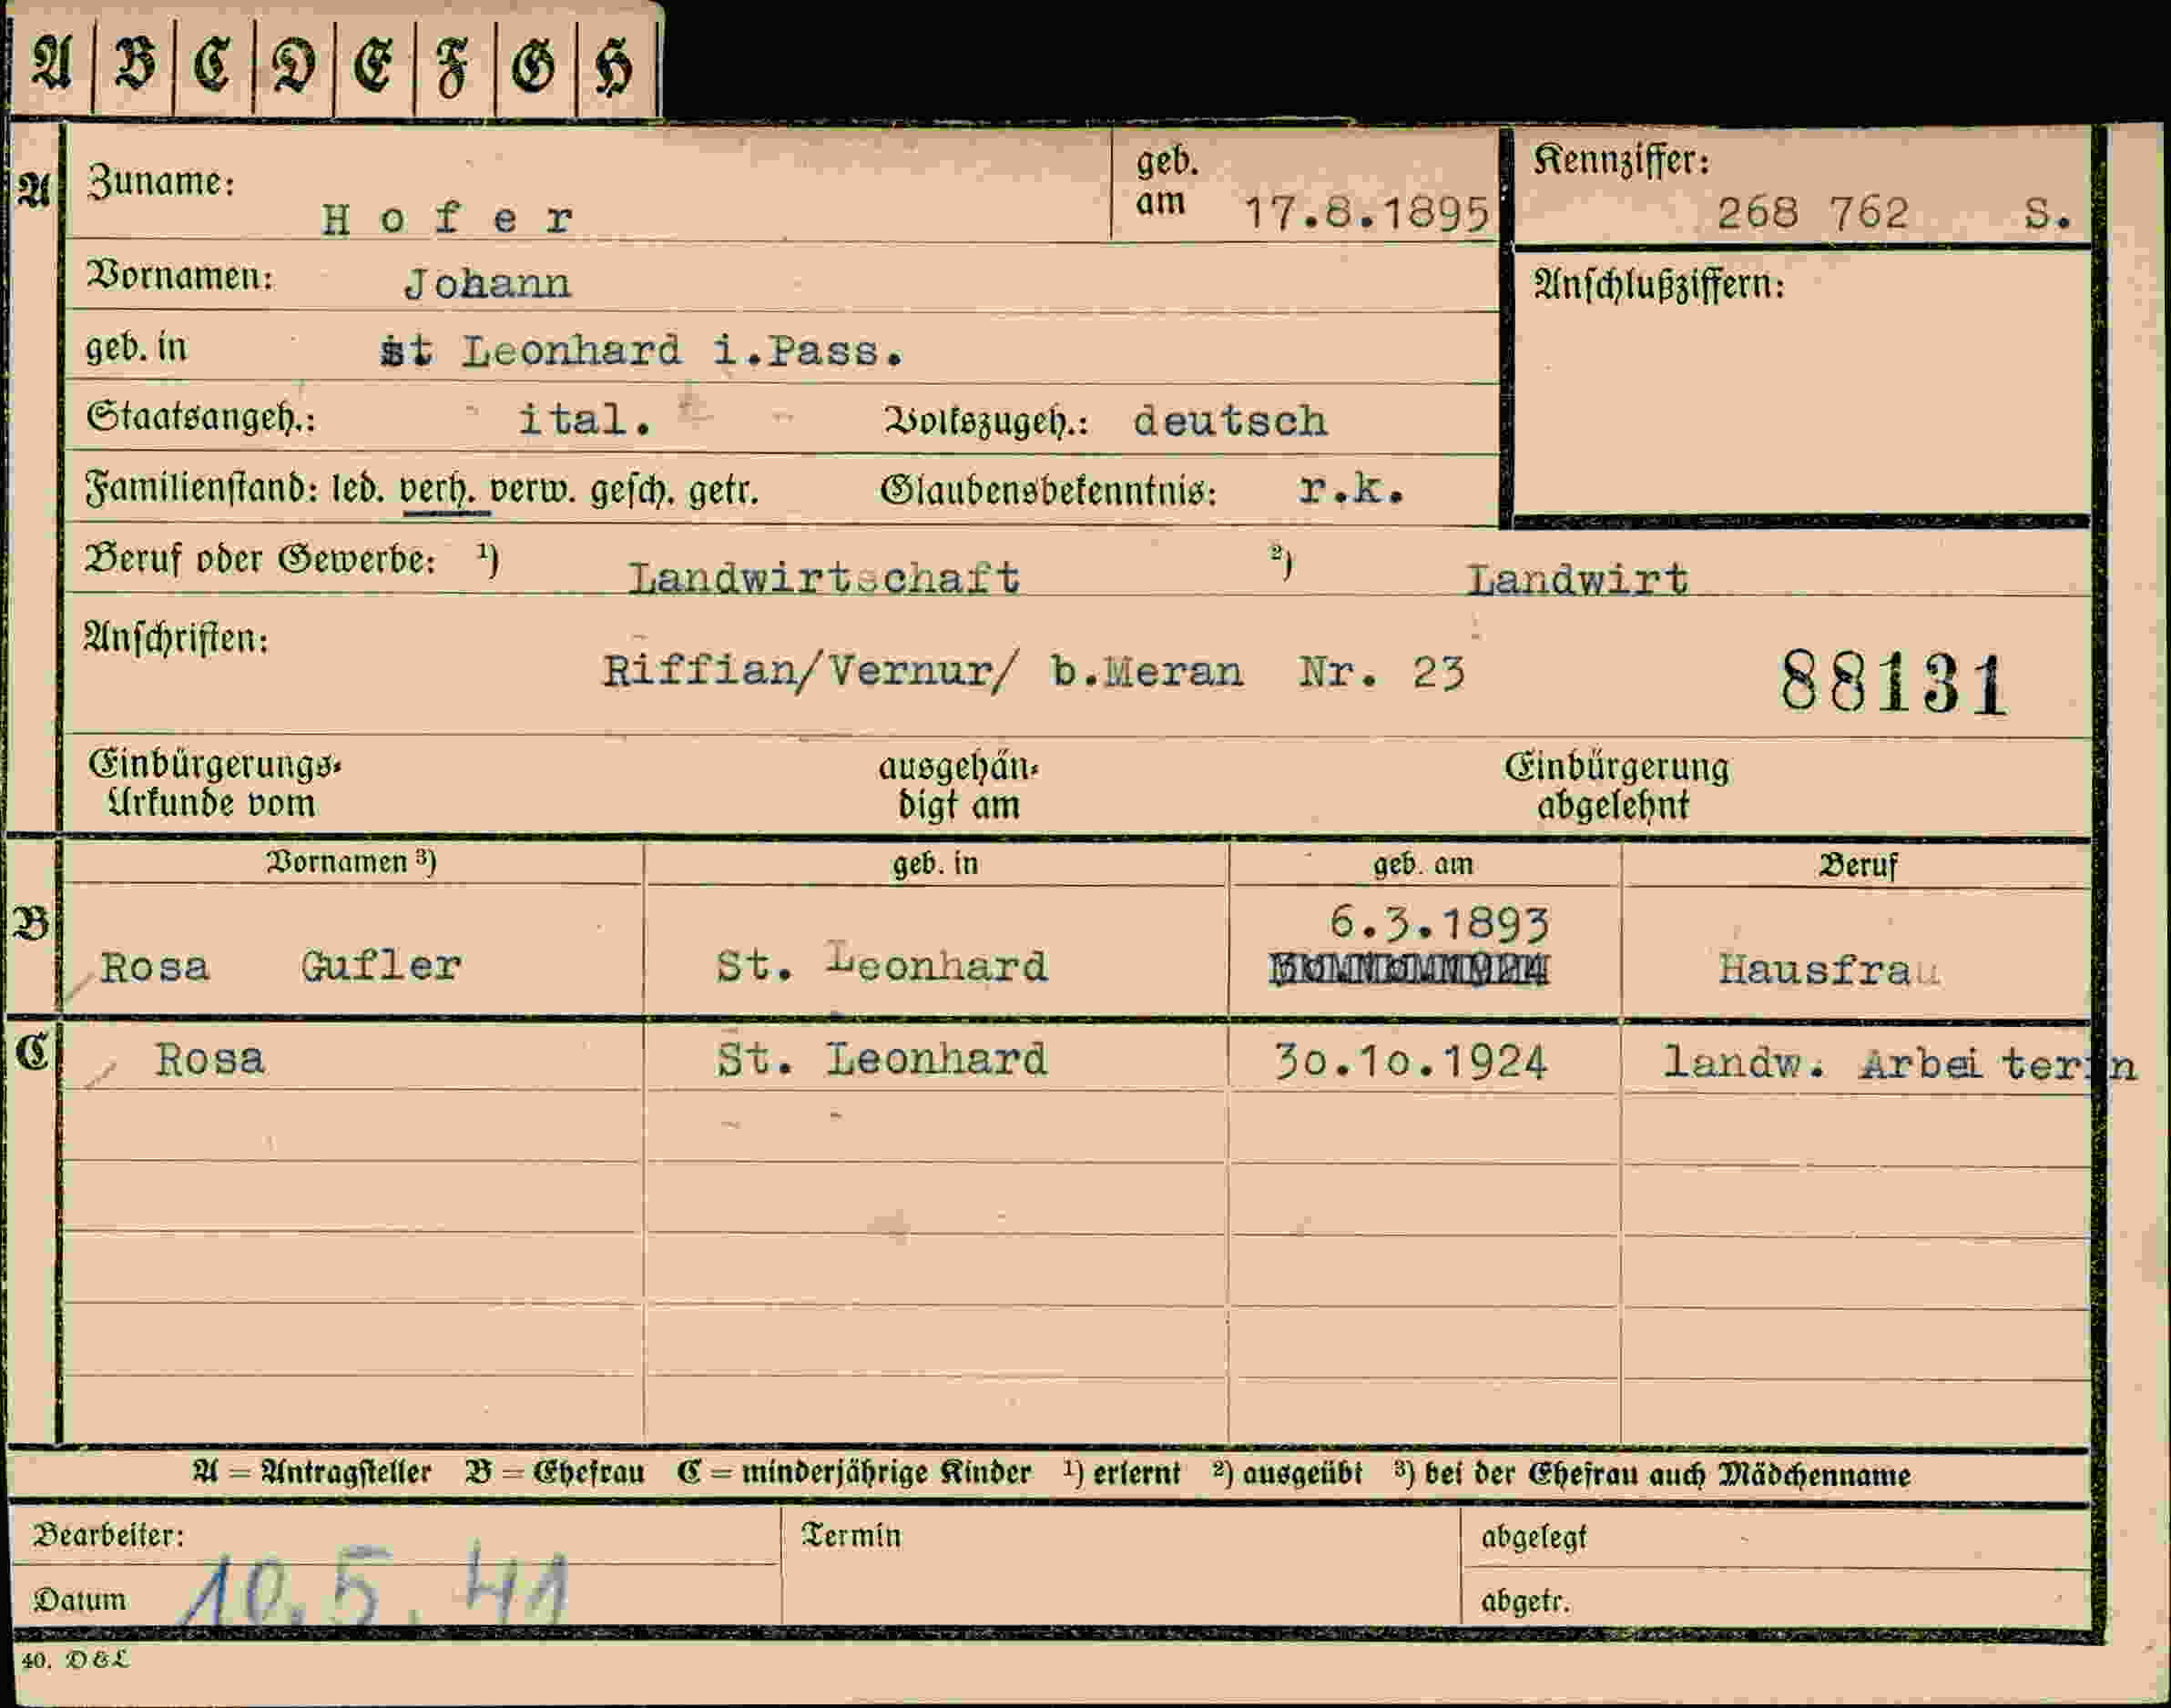 A B C D E F G H
A Zuname: Hofer geb. am 17.8.1895 Kennziffer: 268 762 S.
Vornamen: Johann Anschlußziffern:
geb. in St Leonhard i.Pass.
Staatsangeh.: ital. Volkszugeh.: deutsch
Familienstand: led. verh. verw. gesch. getr. Glaubensbekenntnis: r.k.
Beruf oder Gewerbe: 1) Landwirtschaft 2) Landwirt
Anschriften: Riffian/Vernur/ b.Meran Nr. 23 88131
Einbürgerungs- ausgehän- Einbürgerung
Urkunde vom digt am abgelehnt
Vornamen 3) geb. in geb. am Beruf
B 6.3.1893
Rosa Gufler St. Leonhard Hausfrau
C Rosa St. Leonhard 30.10.1924 landw. Arbei terin
A = Antragsteller B = Ehefrau C = minderjährige Kinder 1) erlernt 2) ausgeübt 3) bei der Ehefrau auch Mädchenname
Bearbeiter: Termin abgelegt
Datum 10.5.41 abgetr.
40. D&L